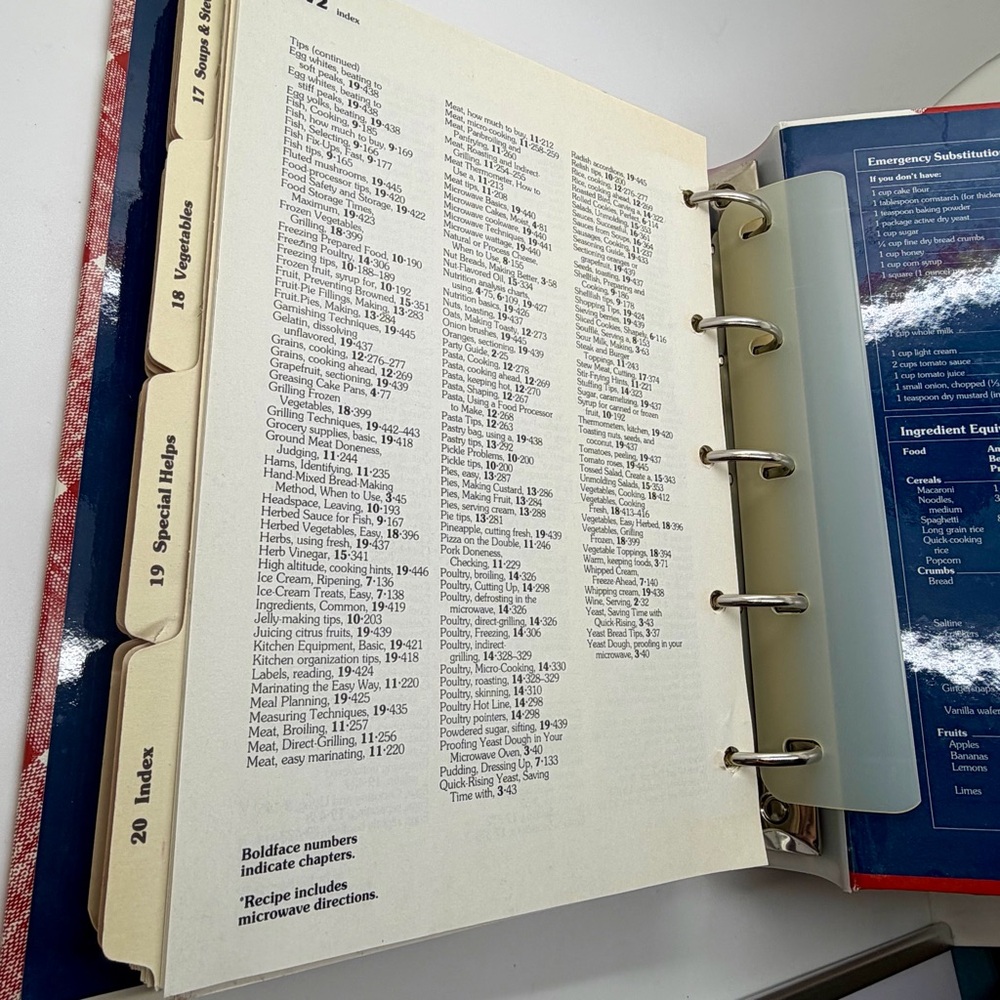 17 Soups & Ste
18 Vegetables
19 Special Helps
20 Index
index
Tips (continued)
Egg whites, beating to
soft peaks, 19·438
Egg whites, beating to
stiff peaks, 19·438
Egg yolks, beating, 19·438
Fish, Cooking, 9·185
Fish, how much to buy, 9·169
Fish, Selecting, 9·166
Fish Fix-Ups, Fast, 9·177
Fish tips, 9·165
Fluted mushrooms, 19·445
Food-processor tips, 19·420
Food Safety and Storage, 19·422
Food Storage Times,
Maximum, 19·423
Frozen Vegetables,
Grilling, 18·399
Freezing Prepared Food, 10·190
Freezing Poultry, 14·306
Freezing tips, 10·188-189
Frozen fruit, syrup for, 10·192
Fruit, Preventing Browned, 15·351
Fruit-Pie Fillings, Making, 13·283
Fruit Pies, Making, 13·284
Garnishing Techniques, 19·445
Gelatin, dissolving
unflavored, 19·437
Grains, cooking, 12·276-277
Grains, cooking ahead, 12·269
Grapefruit, sectioning, 19·439
Greasing Cake Pans, 4·77
Grilling Frozen
Vegetables, 18·399
Grilling Techniques, 19·442-443
Grocery supplies, basic, 19·418
Ground Meat Doneness,
Judging, 11·244
Hams, Identifying, 11·235
Hand-Mixed Bread-Making
Method, When to Use, 3·45
Headspace, Leaving, 10·193
Herbed Sauce for Fish, 9·167
Herbed Vegetables, Easy, 18·396
Herbs, using fresh, 19·437
Herb Vinegar, 15·341
High altitude, cooking hints, 19·446
Ice Cream, Ripening, 7·136
Ice-Cream Treats, Easy, 7·138
Ingredients, Common, 19·419
Jelly-making tips, 10·203
Juicing citrus fruits, 19·439
Kitchen Equipment, Basic, 19·421
Kitchen organization tips, 19·418
Labels, reading, 19·424
Marinating the Easy Way, 11·220
Meal Planning, 19·425
Measuring Techniques, 19·435
Meat, Broiling, 11·257
Meat, Direct-Grilling, 11·256
Meat, easy marinating, 11·220
Meat, how much to buy, 11·212
Meat, micro-cooking, 11·258-259
Meat, Panbroiling and
Panfrying, 11·260
Meat, Roasting and Indirect
Grilling, 11·254-255
Meat Thermometer, How to
Use a, 11·213
Meat tips, 11·208
Microwave Basics, 19·440
Microwave Cakes, Moist, 4·81
Microwave cookware, 19·440
Microwave Techniques, 19·441
Microwave wattage, 19·440
Natural or Process Cheese,
When to Use, 8·155
Nut Breads, Making Better, 3·58
Nut-Flavored Oils, 15·334
Nutrition analysis charts,
using, 4·75, 6·109, 19·427
Nutrition basics, 19·426
Nuts, toasting, 19·437
Oats, Making Toasty, 12·273
Onion brushes, 19·445
Oranges, sectioning, 19·439
Party Guide, 2·25
Pasta, Cooking, 12·278
Pasta, cooking ahead, 12·269
Pasta, keeping hot, 12·270
Pasta, Shaping, 12·267
Pasta, Using a Food Processor
to Make, 12·268
Pasta Tips, 12·263
Pastry bag, using a, 19·438
Pastry tips, 13·292
Pickle Problems, 10·200
Pickle tips, 10·200
Pies, easy, 13·287
Pies, Making Custard, 13·286
Pies, Making Fruit, 13·284
Pies, serving cream, 13·288
Pie tips, 13·281
Pineapple, cutting fresh, 19·439
Pizza on the Double, 11·246
Pork Doneness,
Checking, 11·229
Poultry, broiling, 14·326
Poultry, Cutting Up, 14·298
Poultry, defrosting in the
microwave, 14·326
Poultry, direct-grilling, 14·326
Poultry, Freezing, 14·306
Poultry, indirect
grilling, 14·328-329
Poultry, Micro-Cooking, 14·330
Poultry, roasting, 14·328-329
Poultry, skinning, 14·310
Poultry Hot Line, 14·298
Poultry pointers, 14·298
Powdered sugar, sifting, 19·439
Proofing Yeast Dough in Your
Microwave Oven, 3·40
Pudding, Dressing Up, 7·133
Quick-Rising Yeast, Saving
Time with, 3·43
Radish accordions, 19·445
Relish tips, 10·200
Rice, cooking
Sectioning oranges or
grapefruit, 19·439
Seeds, toasting, 19·437
Shellfish, Preparing and
Cooking, 9·186
Shellfish tips, 9·178
Shopping Tips, 19·424
Sieving berries, 19·439
Sliced Cookies, Shapely, 6·116
Soufflé, Serving a, 8·155
Sour Milk, Making, 3·63
Steak and Burger
Toppings, 11·243
Stew Meat, Cutting, 17·374
Stir-Frying Hints, 11·221
Stuffing Tips, 14·323
Sugar, caramelizing, 19·437
Syrup for canned or frozen
fruit, 10·192
Thermometers, kitchen, 19·420
Toasting nuts, seeds, and
coconut, 19·437
Tomatoes, peeling, 19·437
Tomato roses, 19·445
Tossed Salad, Create a, 15·343
Unmolding Salads, 15·353
Vegetables, Cooking, 18·412
Vegetables, Cooking
Fresh, 18·413-416
Vegetables, Easy Herbed, 18·396
Vegetables, Grilling
Frozen, 18·399
Vegetable Toppings, 18·394
Warm, keeping foods, 3·71
Whipped Cream,
Freeze-Ahead, 7·140
Whipping cream, 19·438
Wine, Serving, 2·32
Yeast, Saving Time with
Quick-Rising, 3·43
Yeast Bread Tips, 3·37
Yeast Dough, proofing in your
microwave, 3·40
Boldface numbers
indicate chapters.
*Recipe includes
microwave directions.
Emergency Substitutio
If you don't have:
1 cup cake flour
1 tablespoon cornstarch (for thicke
1 teaspoon baking powder
1 package active dry yeast
1 cup sugar
¼ cup fine dry bread crumbs
1 cup honey
1 cup corn syrup
1 square (1 ounce)
1 cup whole milk
1 cup light cream
2 cups tomato sauce
1 cup tomato juice
1 small onion, chopped (⅓
1 teaspoon dry mustard (in
Ingredient Equiv
Food
Cereals
Macaroni
Noodles,
medium
Spaghetti
Long grain rice
Quick-cooking
rice
Popcorn
Crumbs
Bread
Saltine
crackers
Gingersnaps
Vanilla wafer
Fruits
Apples
Bananas
Lemons
Limes